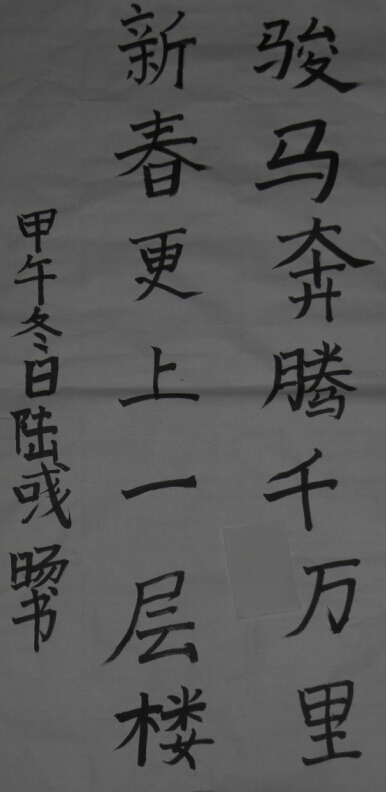 骏马奔腾千万里
新春更上一层楼
甲午冬日陆彧旸书